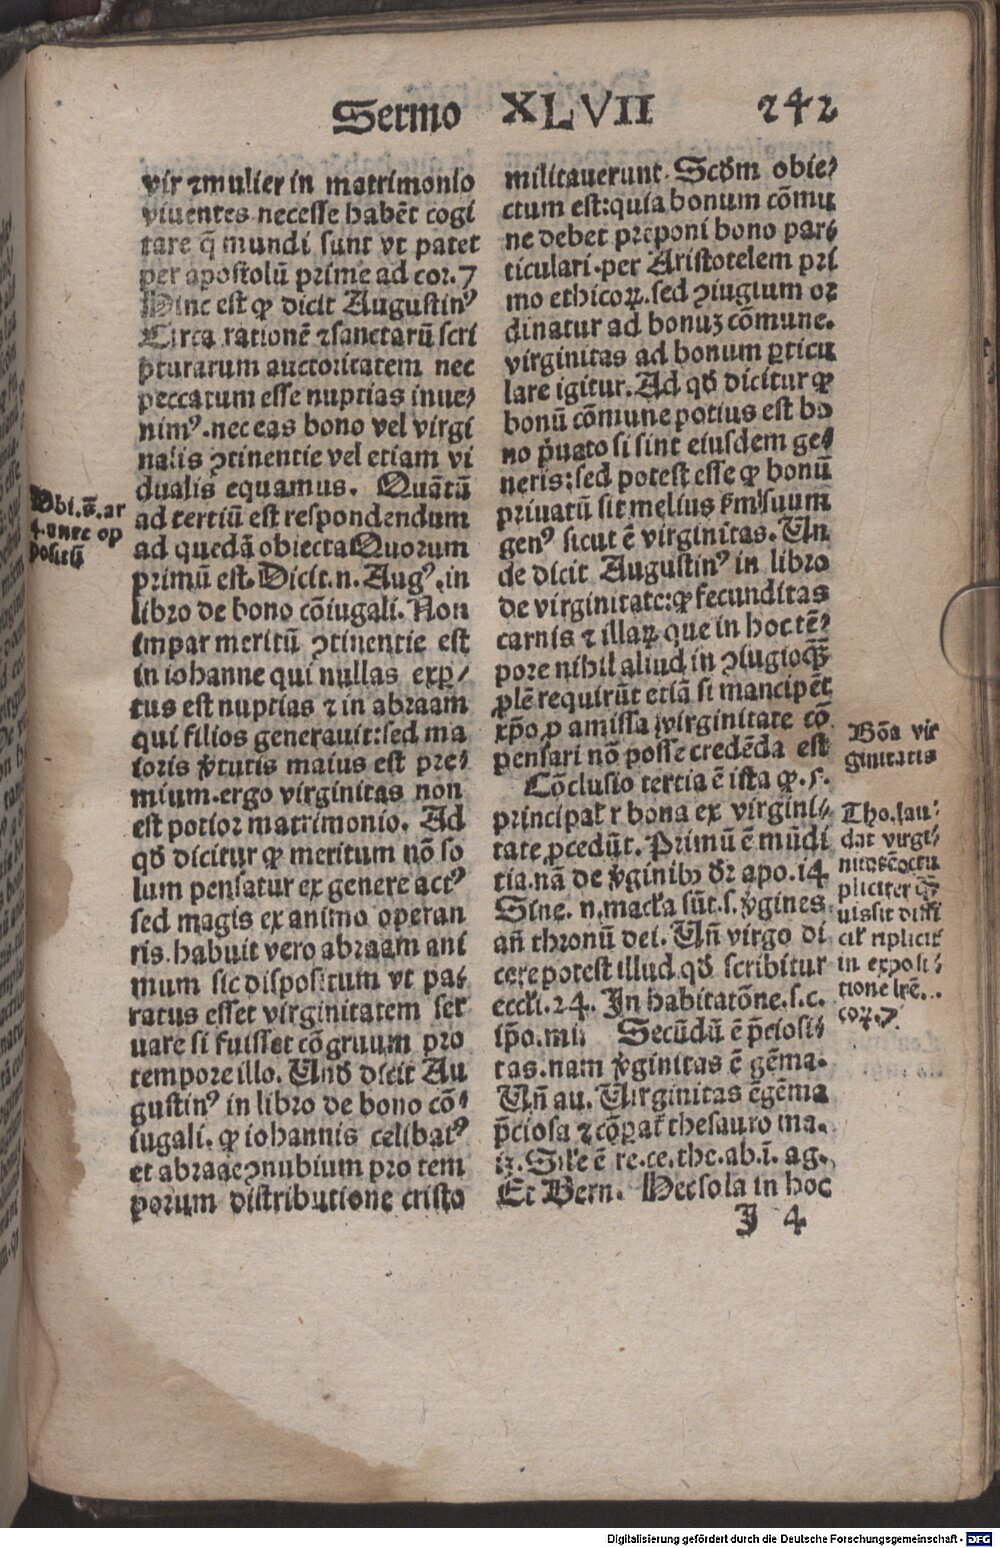 Sermo XLVII 242
vir ⁊mulier in matrimonio
viuentes necesse habēt cogi
tare q̄ mundi sunt vt patet
per apostolū prime ad cor.7
Hinc est ꝙ dicit Augustinꝰ
Circa rationē ⁊sanctarū scri
pturarum auctoritatem nec
peccatum esse nuptias inue⸗
nimꝰ.nec eas bono vel virgi
nalis ꝯtinentie vel etiam vi
dualis equamus. Quātū
ad tertiū est respondendum
ad quedā obiecta Quorum
primū est. Dicit.n. Augꝰ.in
libro de bono cōiugali. Non
impar meritū ꝯtinentie est
in iohanne qui nullas exp̱⸗
tus est nuptias ⁊ in abraam
qui filios generauit:sed ma
ioris v̓tutis maius est pre⸗
mium.ergo virginitas non
est potior matrimonio. Ad
qđ dicitur ꝙ meritum nō so
lum pensatur ex genere actꝰ
sed magis ex animo operan
tis.habuit vero abraam ani
mum sic dispositum vt pa⸗
ratus esset virginitatem ser
uare si fuisset cōgruum pro
tempore illo. Unđ dicit Au
gustinꝰ in libro de bono cō⸗
iugali. ꝙ iohannis celibatꝰ
et abraae ꝯnubium pro tem
porum distributione cristo
Vbi.s̄.ar
4.ante op
positū
militauerunt. Scđm obie⸗
ctum est:quia bonum cōmu
ne debet preponi bono par⸗
ticulari.per Aristotelem pri
mo ethicoꝝ.sed ꝯiugium or
dinatur ad bonuꝫ cōmune.
virginitas ad bonum ꝑticu
lare igitur. Ad qđ dicitur ꝙ
bonū cōmune potius est bo
no p̓uato si sint eiusdem ge⸗
neris:sed potest esse ꝙ bonū
priuatū sit melius s̓m suum
genꝰ sicut ē virginitas. Un
de dicit Augustinꝰ in libro
de virginitate:ꝙ fecunditas
carnis ⁊ illaꝝ que in hoc tē⸗
pore nihil aliud in ꝯiugio q̄ꝫ
ꝓlē requirūt etiā si mancipēt
xp̄o ꝓ amissa virginitate cō
pensari nō posse credēda est
Cōclusio tertia ē ista ꝙ.5.
principalr̓ bona ex virgini⸗
tate ꝓcedūt. Primū ē mūdi
tia.nā de v̓ginibꝫ dr̄ apo.14
Sine. n.macl̓a sūt.s.v̓gines
an̄ thronū dei. Un̄ virgo di
cere potest illud.qđ scribitur
eccli.24. In habitatōne.s.c.
ip̄o.mi. Secūdū ē p̄ciosi⸗
tas.nam v̓ginitas ē gēma.
Un̄ au. Uirginitas ē gēma
p̄ciosa ⁊ cōꝑat̓ thesauro ma.
13. Sil̓e ē re.ce.the.ab.i. ag.
Et Bern. Hec sola in hoc
Bōa vir
ginitatis
Tho.lau⸗
dat virgi⸗
nitatē octu
pliciter q̄ꝫ
cor.7.
J 4
Digitalisierung gefördert durch die Deutsche Forschungsgemeinschaft - DFG